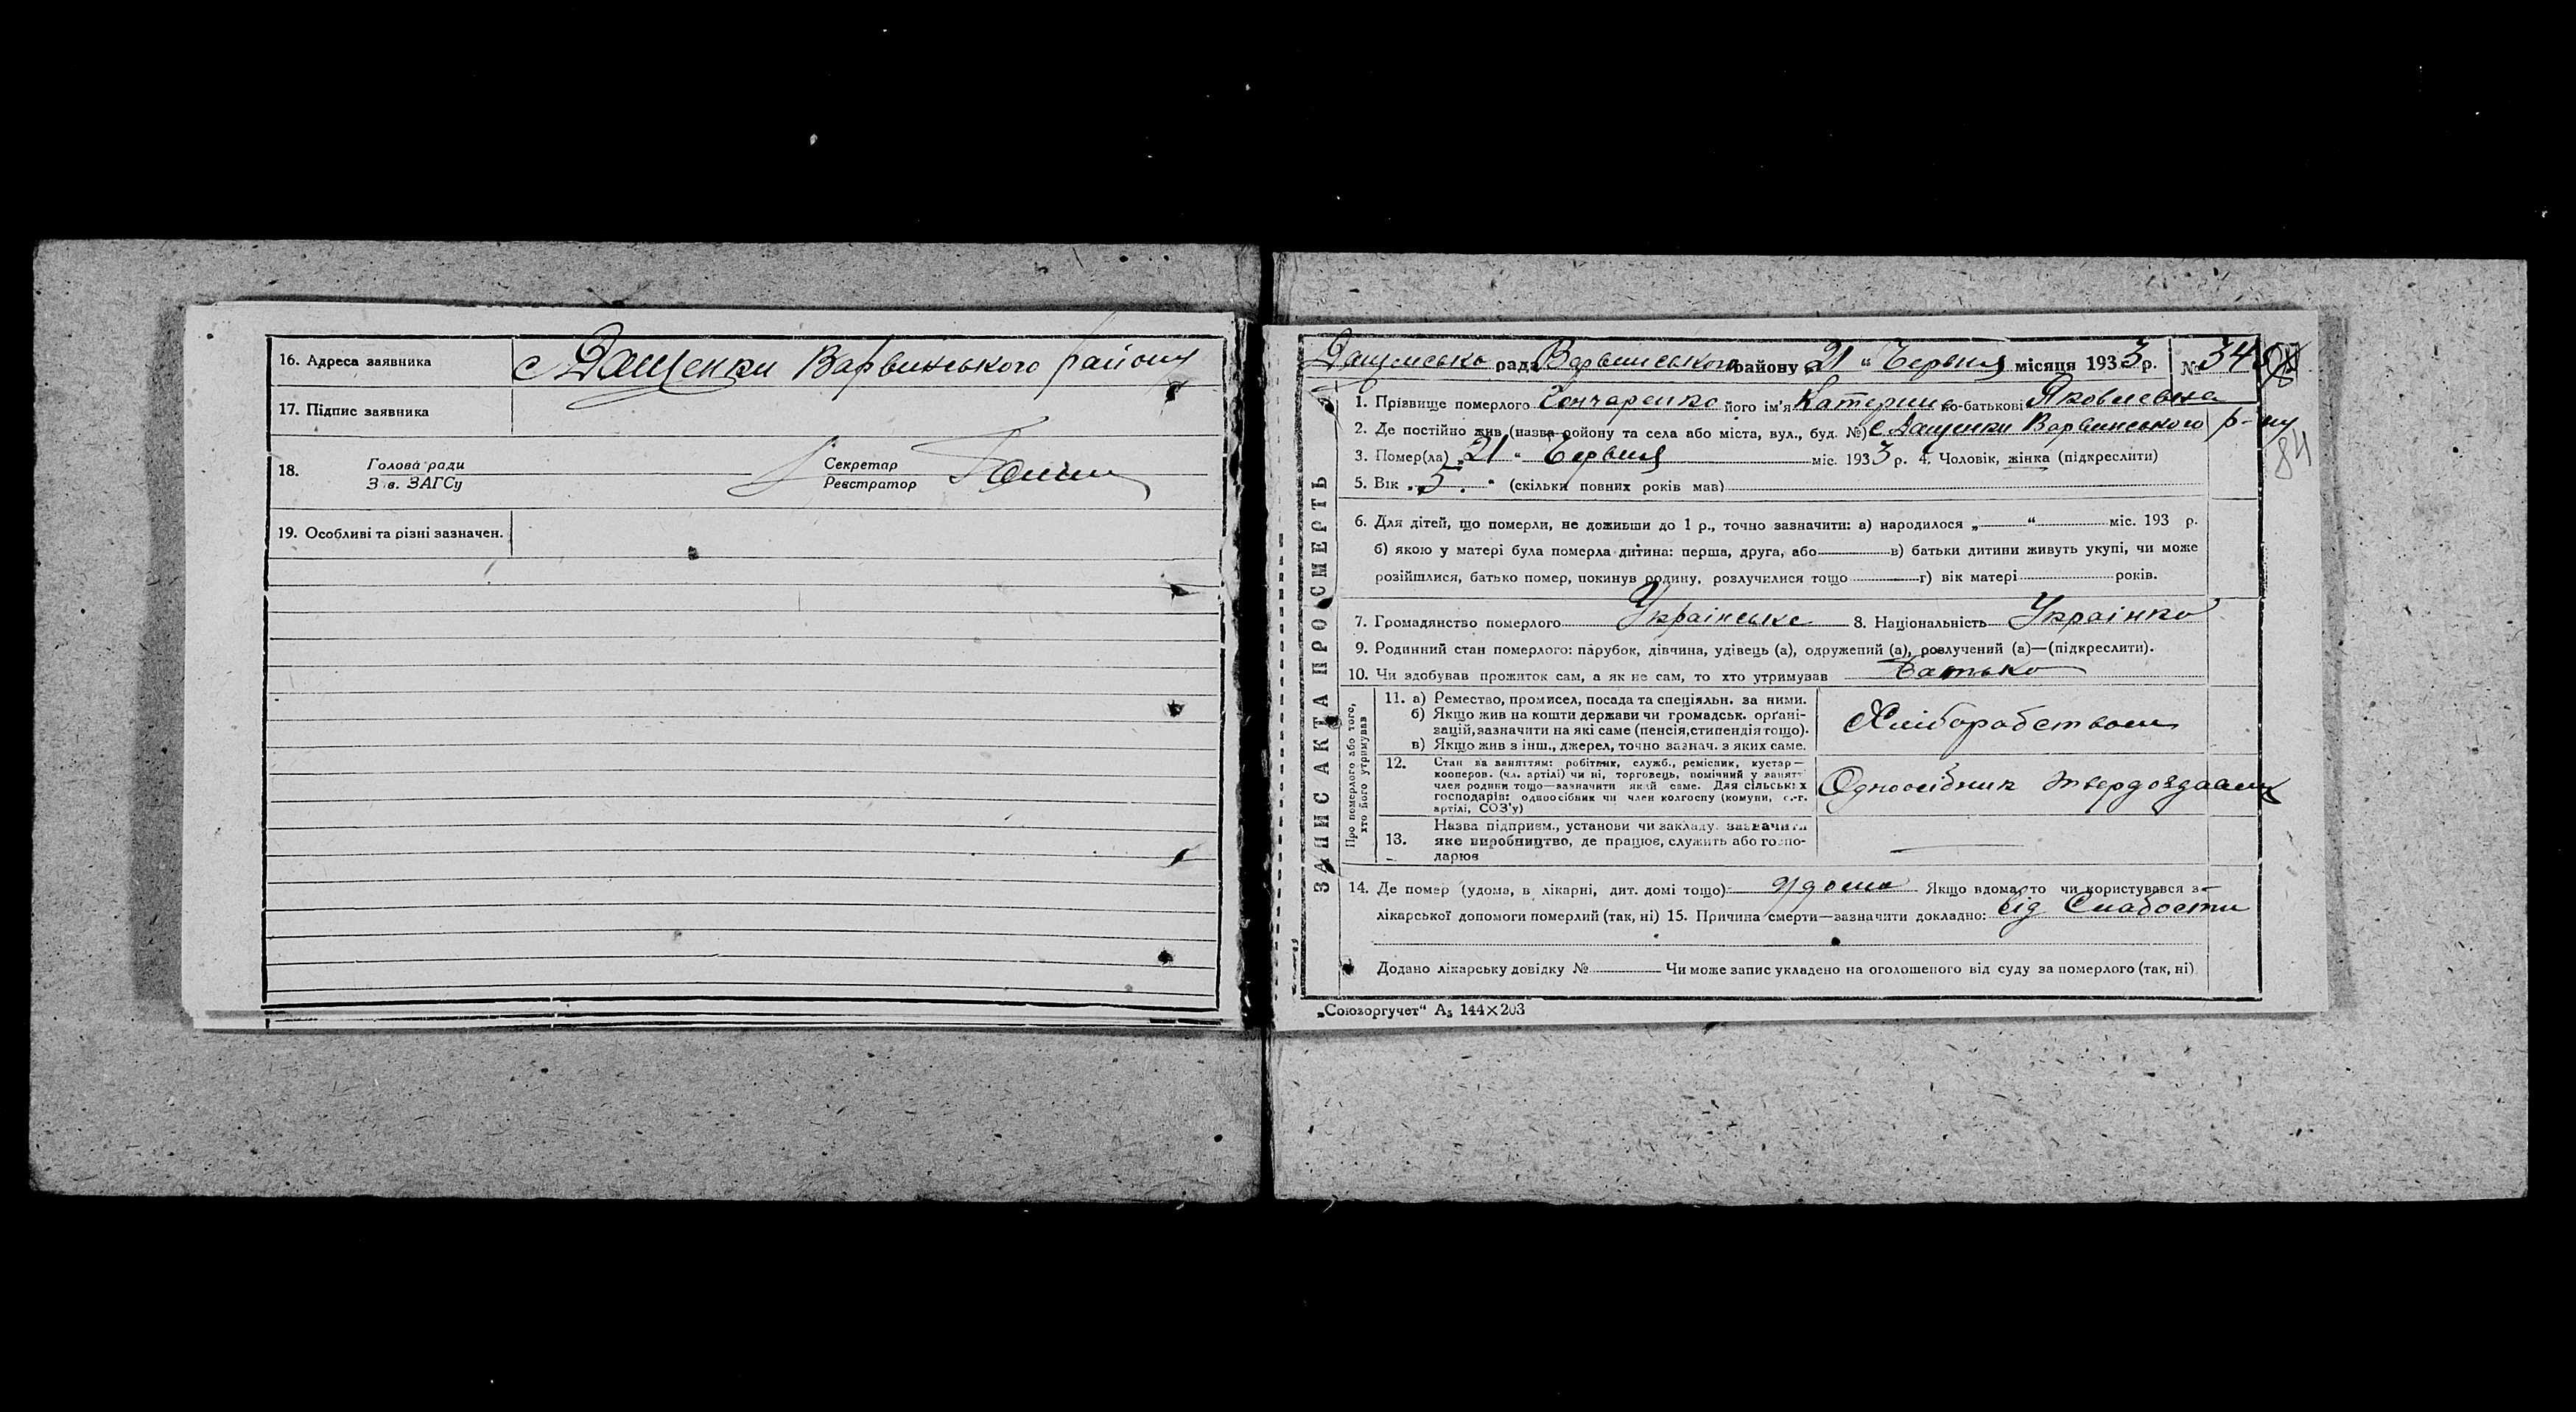 16. Адреса заявника с Дащенки Варвинського району
17. Підпис заявника
18. Голова ради Секретар
З в. ЗАГСу Реєстратор
19. Особливі та різні зазначен.
Дащенська рада Варвинського району „21“ Червня місяця 1933 р. № 34
ЗАПИС АКТА ПРО СМЕРТЬ
1. Прізвище померлого Гончаренко його ім'я Катерина по-батькові Яковлевна
2. Де постійно жив (назва району та села або міста, вул., буд. №) с Дащенки Варвинського р-ну
3. Помер(ла) „21“ Червня міс. 1933 р. 4. Чоловік, жінка (підкреслити)
84
5. Вік „5.“ (скільки повних років мав)
6. Для дітей, що померли, не доживши до 1 р., точно зазначити: а) народилося „ “ міс. 193 р.
б) якою у матері була померла дитина: перша, друга, або в) батьки дитини живуть укупі, чи може
розійшлися, батько помер, покинув родину, розлучилися тощо г) вік матері років.
7. Громадянство померлого Українське 8. Національність Українка
9. Родинний стан померлого: парубок, дівчина, удівець (а), одружений (а), розлучений (а)—(підкреслити).
10. Чи здобував прожиток сам, а як не сам, то хто утримував Батько
Про померлого або того,
хто його утримував
11. а) Ремество, промисел, посада та спеціяльн. за ними.
б) Якщо жив на кошти держави чи громадськ. орґані-
зацій, зазначити на які саме (пенсія, стипендія тощо).
в) Якщо жив з інш., джерел, точно зазнач. з яких саме.
Хліборобством
12. Стан за заняттям: робітник, служб., ремісник, кустар—
кооперов. (чл. артілі) чи ні, торговець, помічний у занятт
член родини тощо—зазначити який саме. Для сільських
господарів: одноосібник чи член колгоспу (комуни, с.-г.
артілі, СОЗ'у)
Одноосібник твердоздавец
13. Назва підприєм., установи чи закладу, зазначити
яке виробництво, де працює, служить або госпо-
дарює
14. Де помер (удома, в лікарні, дит. домі тощо) удома Якщо вдома, то чи користувався з
лікарської допомоги померлий (так, ні) 15. Причина смерти—зазначити докладно: від Слабости
Додано лікарську довідку № Чи може запис укладено на оголошеного від суду за померлого (так, ні)
„Союзоргучет“ А₅ 144×203